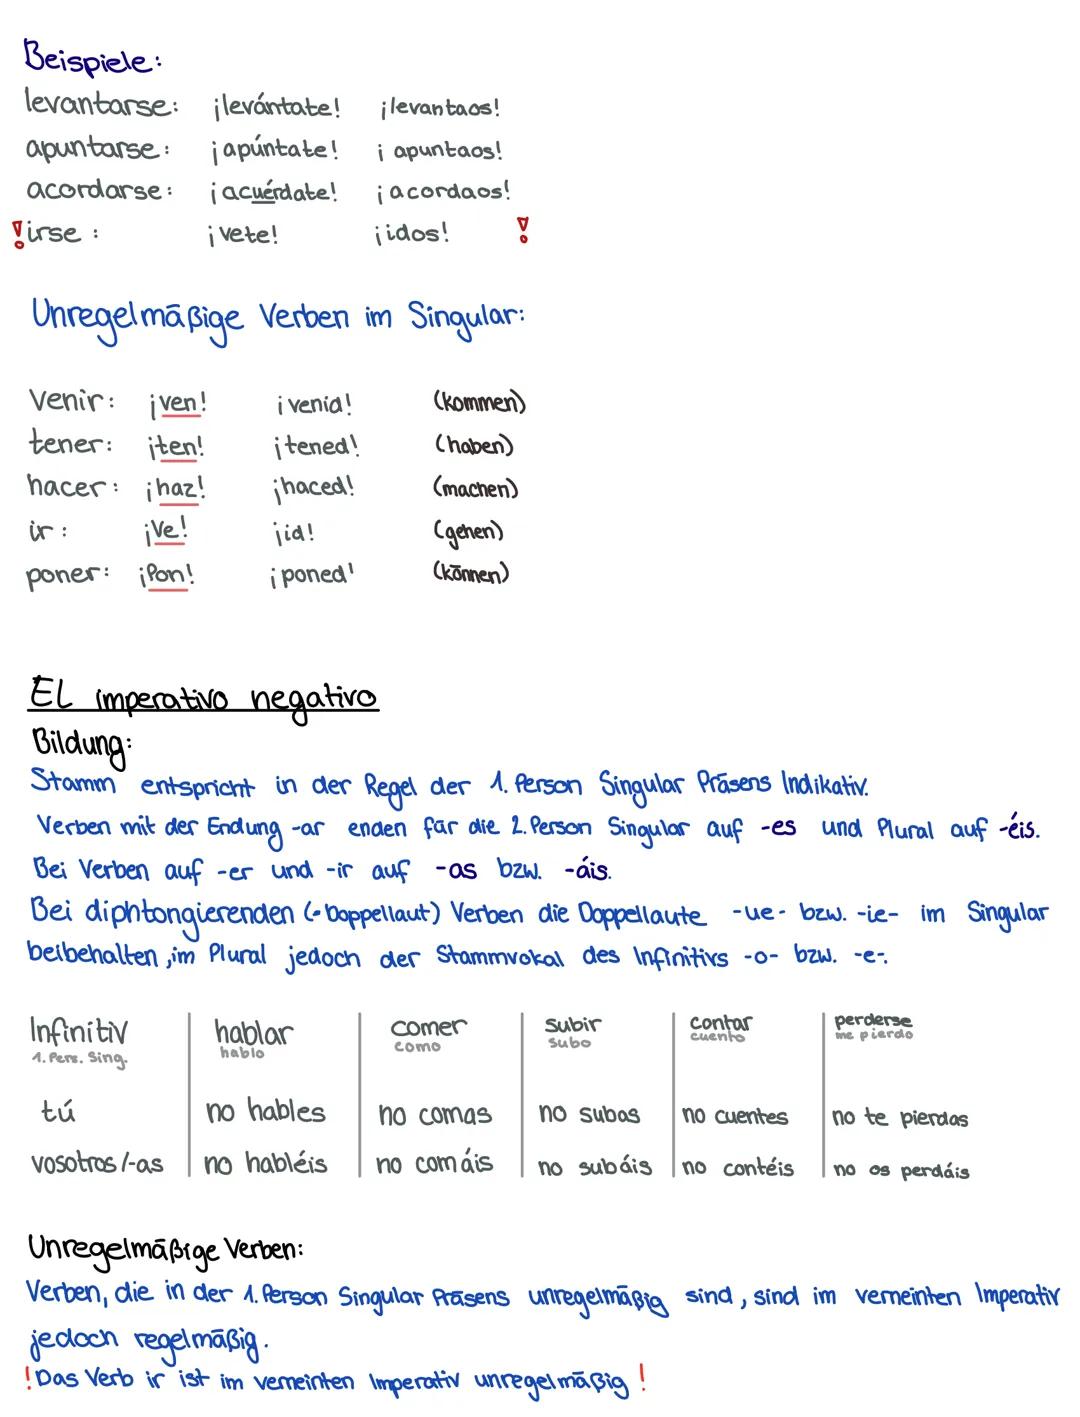 Beispiele:
levantarse: ¡levántate! ¡levantaos!
apuntarse: ¡apúntate! ¡apuntaos!
acordarse: ¡acuérdate! ¡acordaos!
! irse: ¡vete! ¡idos! !
Unregelmäßige Verben im Singular:
Venir: ¡ven! ¡venid! (kommen)
tener: ¡ten! ¡tened! (haben)
hacer: ¡haz! ¡haced! (machen)
ir: ¡Ve! ¡id! (gehen)
poner: ¡Pon! ¡poned! (können)
EL imperativo negativo
Bildung:
Stamm entspricht in der Regel der 1. Person Singular Präsens Indikativ.
Verben mit der Endung -ar enden für die 2. Person Singular auf -es und Plural auf -éis.
Bei Verben auf -er und -ir auf -as bzw. -áis.
Bei diphtongierenden (=Doppellaut) Verben die Doppellaute -ue- bzw. -ie- im Singular
beibehalten, im Plural jedoch der Stammvokal des Infinitivs -o- bzw. -e-.
Infinitiv hablar comer subir contar perderse
1. Pers. Sing. hablo como subo cuento me pierdo
tú no hables no comas no subas no cuentes no te pierdas
vosotros/-as no habléis no comáis no subáis no contéis no os perdáis
Unregelmäßige Verben:
Verben, die in der 1. Person Singular Präsens unregelmäßig sind, sind im verneinten Imperativ
jedoch regelmäßig.
! Das Verb ir ist im verneinten Imperativ unregelmäßig !